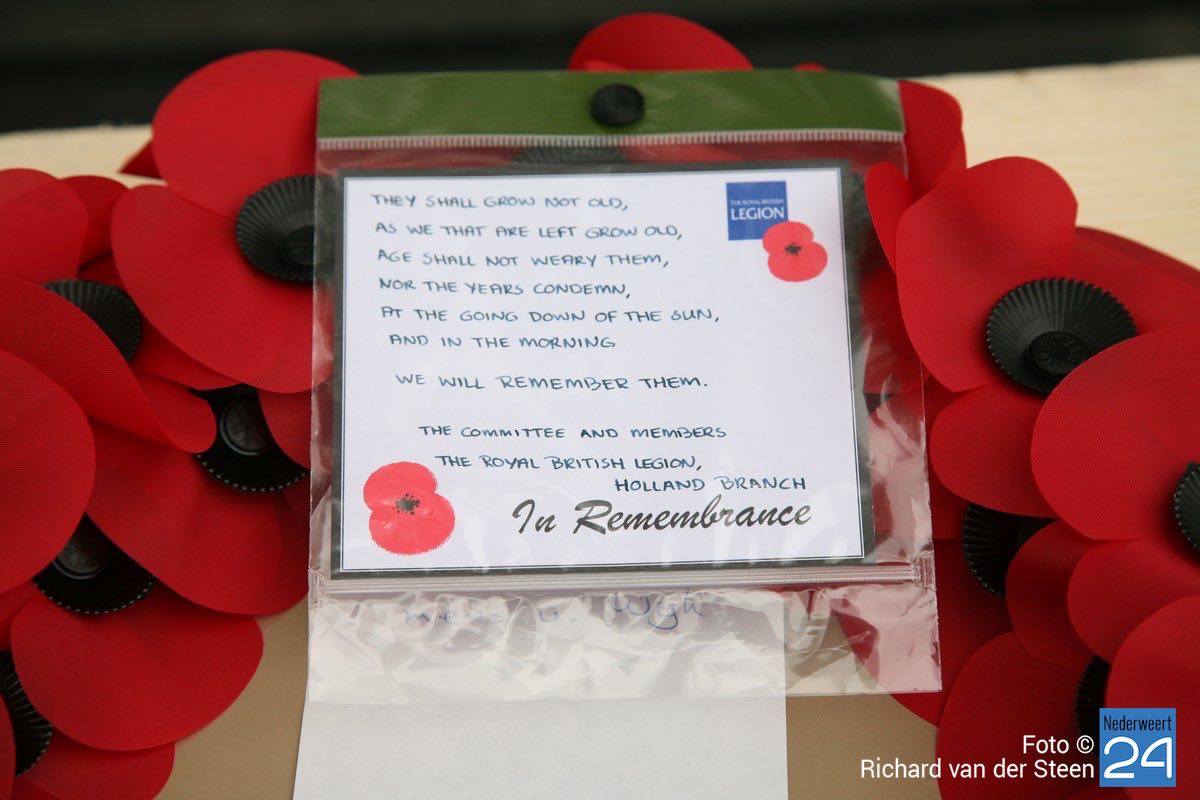 THE ROYAL BRITISH
LEGION
THEY SHALL GROW NOT OLD,
AS WE THAT ARE LEFT GROW OLD,
AGE SHALL NOT WEARY THEM,
NOR THE YEARS CONDEMN,
AT THE GOING DOWN OF THE SUN,
AND IN THE MORNING
WE WILL REMEMBER THEM.
THE COMMITTEE AND MEMBERS
THE ROYAL BRITISH LEGION,
HOLLAND BRANCH
In Remembrance
Foto ©
Richard van der Steen
Nederweert
24